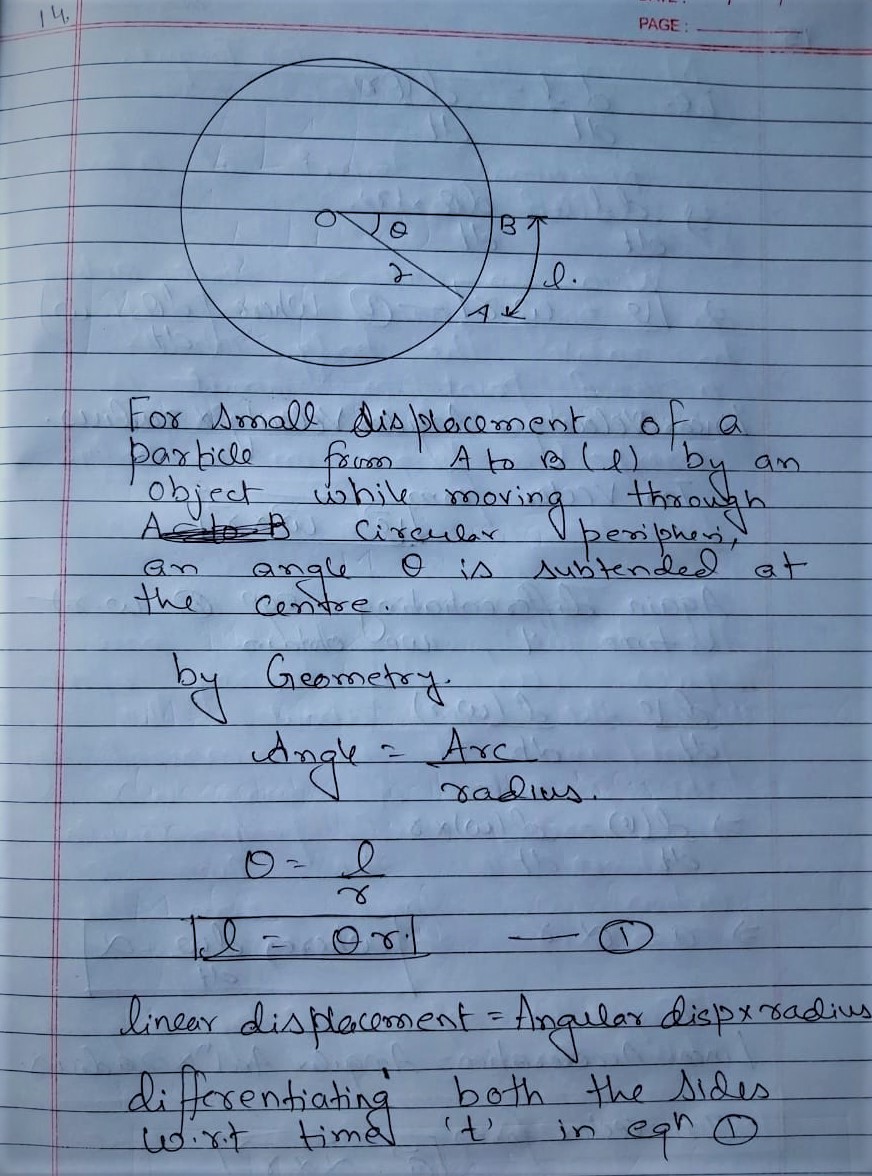 14.
PAGE :
O θ B
r l.
A
For small displacement of a
particle from A to B (l) by an
object while moving through
circular peripheri,
an angle θ is subtended at
the centre.
by Geometry.
Angle = Arc
radius.
θ = l
r
l = θr. — ①
linear displacement = Angular disp x radius
differentiating both the sides
w.r.t time 't' in eqn ①